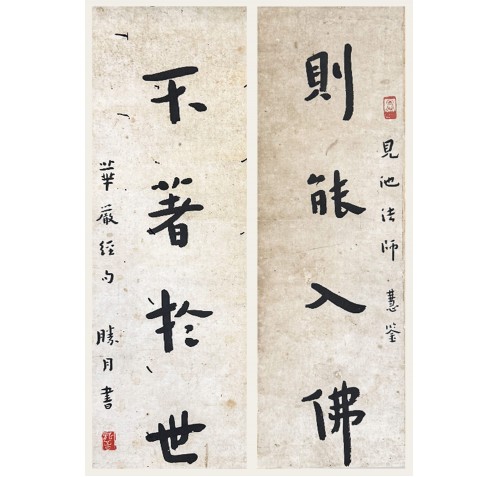 見池法師慧鉴
則能入佛
不著於世
華嚴經句 勝月書